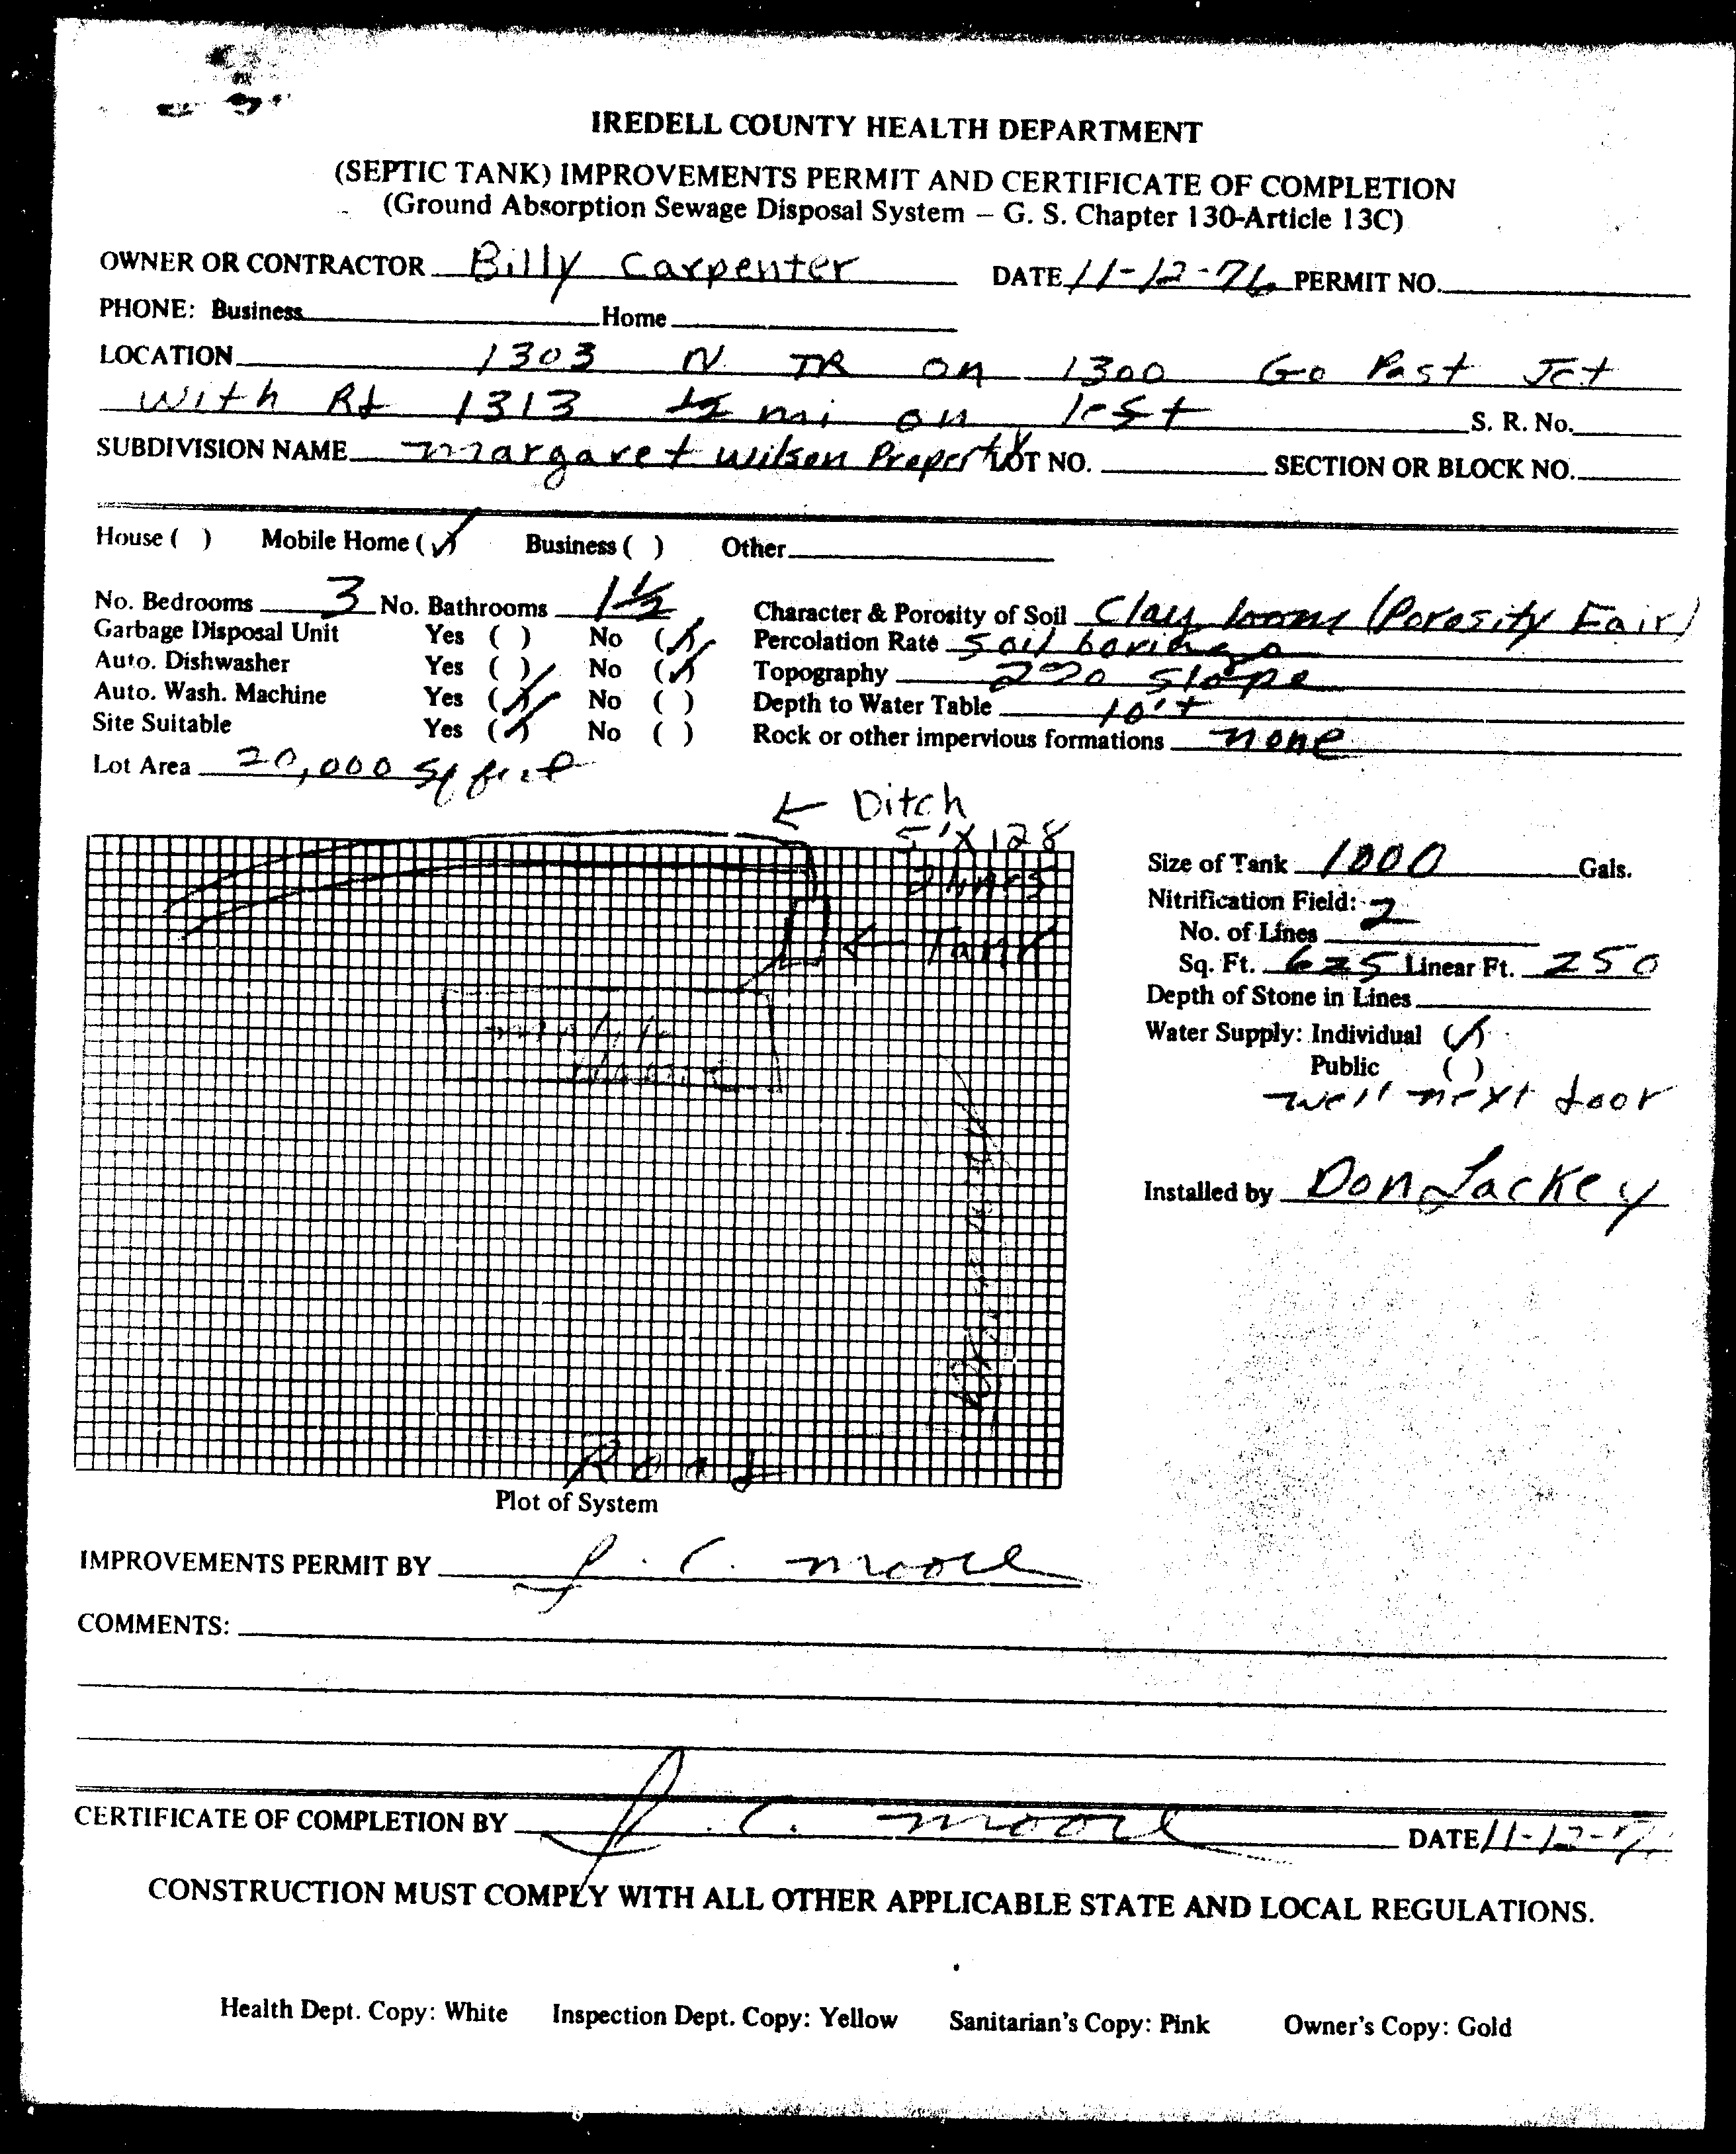 IREDELL COUNTY HEALTH DEPARTMENT
(SEPTIC TANK) IMPROVEMENTS PERMIT AND CERTIFICATE OF COMPLETION
(Ground Absorption Sewage Disposal System – G. S. Chapter 130-Article 13C)
OWNER OR CONTRACTOR Billy Carpenter DATE 11-12-76 PERMIT NO.
PHONE: Business Home
LOCATION 1303 N TR on 1300 Go Past Jct
with Rd 1313 ½ mi on left S. R. No.
SUBDIVISION NAME Margaret Wilson Property LOT NO. SECTION OR BLOCK NO.
House ( ) Mobile Home (✓) Business ( ) Other
No. Bedrooms 3 No. Bathrooms 1½ Character & Porosity of Soil Clay loom (Porosity Fair)
Garbage Disposal Unit Yes ( ) No (✓) Percolation Rate Soil borings
Auto. Dishwasher Yes ( ) No (✓) Topography 2% slope
Auto. Wash. Machine Yes (✓) No ( ) Depth to Water Table 10'+
Site Suitable Yes (✓) No ( ) Rock or other impervious formations none
Lot Area 20,000 sq feet
← Ditch
5'X128
2 lines
← Tank
mobile
home
Road
Size of Tank 1000 Gals.
Nitrification Field:
No. of Lines 2
Sq. Ft. 625 Linear Ft. 250
Depth of Stone in Lines
Water Supply: Individual (✓)
Public ( )
well next door
Installed by Don Lackey
Plot of System
IMPROVEMENTS PERMIT BY J. C. Moore
COMMENTS:
CERTIFICATE OF COMPLETION BY J. C. Moore DATE 11-12-7
CONSTRUCTION MUST COMPLY WITH ALL OTHER APPLICABLE STATE AND LOCAL REGULATIONS.
Health Dept. Copy: White Inspection Dept. Copy: Yellow Sanitarian's Copy: Pink Owner's Copy: Gold